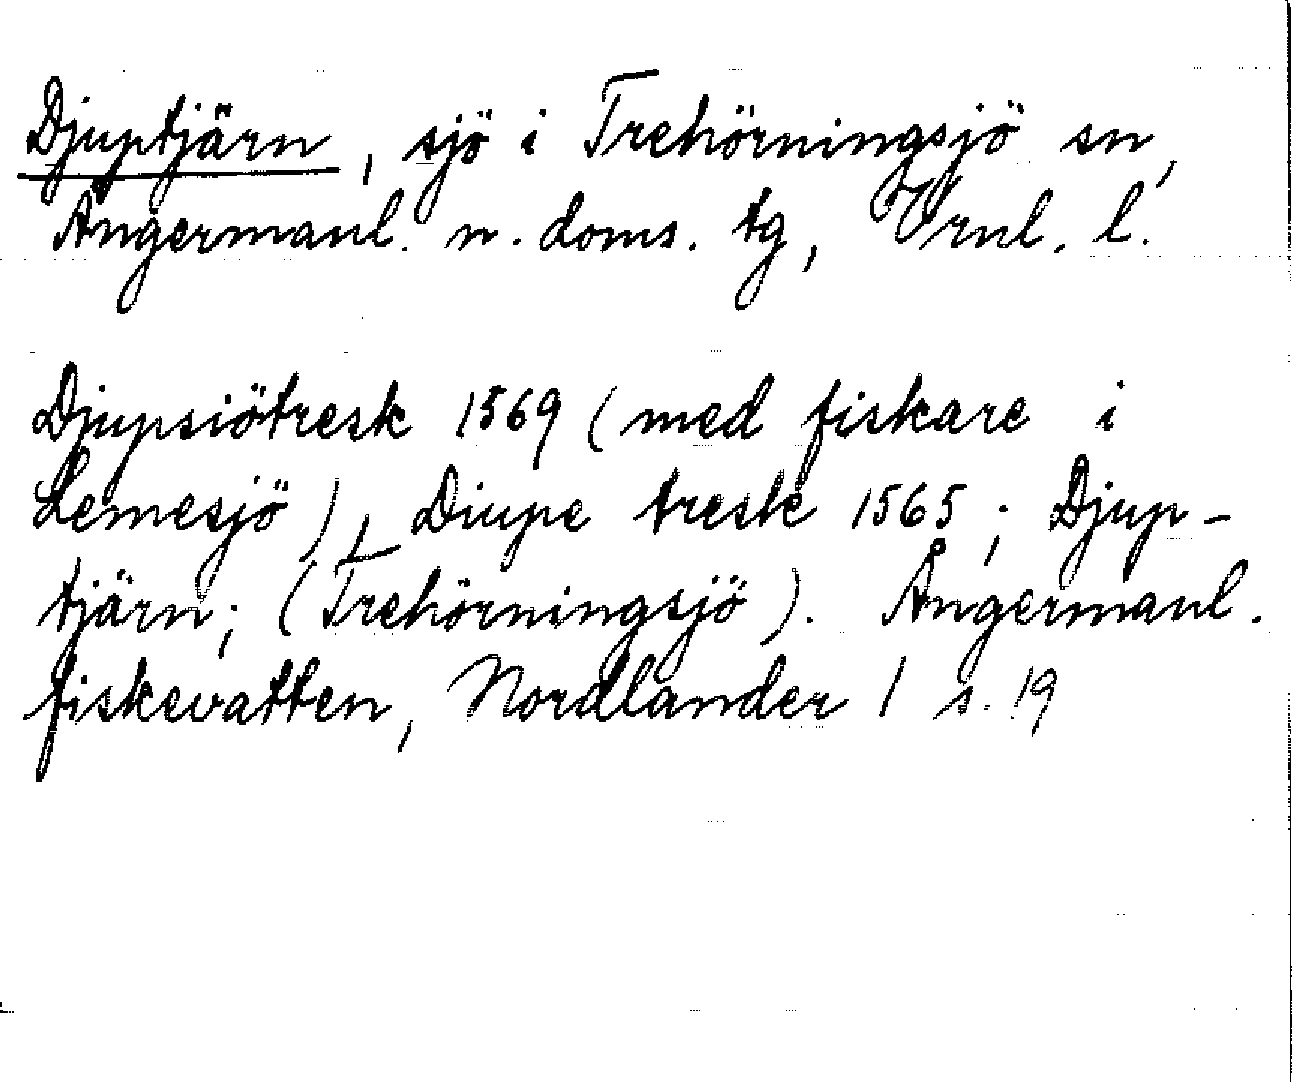 Djuptjärn, sjö i Trehörningsjö sn,
Ångermanl. n. doms. tg, Vrnl. l.
Djupsiötresk 1569 (med fiskare i
Lemesjö), Diupe tresk 1565; Djup-
tjärn; (Trehörningsjö). Ångermanl.
fiskevatten, Nordlander 1 s. 19